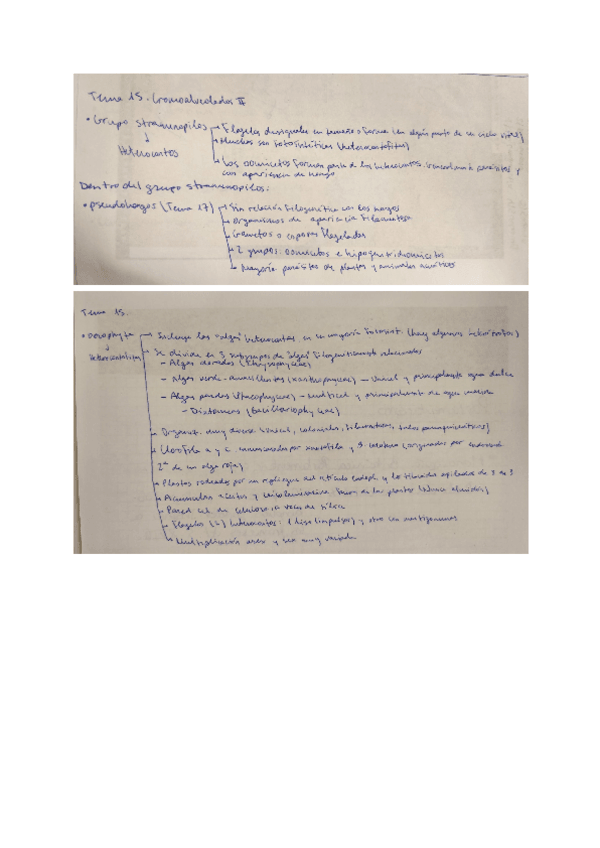 Tema 15. Cromoalveolados II
• Grupo stramenopilos
Flagelos desiguales en tamaño y forma (en algún punto de su ciclo vital)
Muchos son fotosintéticos (heterocontofitas)
↓
Heterocontos
Los oomicetos forman parte de los heterocontos, parásitos y
con apariencia de hongo
Dentro del grupo stramenopilos:
• pseudohongos (Tema 17)
Sin relación filogenética con los hongos
Organismos de apariencia filamentosa
Gametos o esporas flageladas
2 grupos: oomicetos e hipoquitridiomicetos
Mayoría parásitos de plantas y animales acuáticos
Tema 15.
• Ocrophyta
Incluye las "algas" heterocontas, en su mayoría fotosint. (hay algunos heterótrofos)
↓
Se divide en 3 subgrupos de "algas" filogenéticamente relacionados
- Algas doradas (Chrysophyceae)
- Algas verde-amarillentas (xantophyceae) - Unicel y principalmente agua dulce
- Algas pardas (Phaeophyceae) - Multicel y principalmente de agua marina
- Diatomeas (Bacillariophyceae)
Organiz. muy diversa (unicel, coloniales, filamentosos, talos parenquimáticos)
Clorofila a y c enmascaradas por xantofila y β-caroteno (originados por endosimb
2ª de un alga roja)
Plastos rodeados por un repliegue del retículo endopl. y los tilacoides apilados de 3 en 3
Acumulan aceites y crisolaminarina fuera de los plastos (nunca almidón)
Pared cel. de celulosa a veces de sílice
Flagelos (2) heterocontos: 1 liso (impulsor) y otro con mastigonemas
Multiplicación asex y sex muy variada